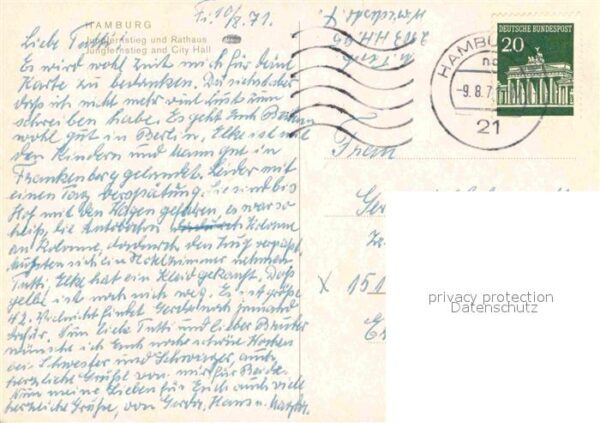 HAMBURG
Jungfernstieg und Rathaus
Jungfernstieg and City Hall
Fr. 10/8.71.
Liebe Tutti!
Es wird wohl Zeit mich für Deine
Karte zu bedanken. Du siehst aber
daß ich nicht mehr viel Lust zum
schreiben habe. Es geht Euch
wohl gut in Berlin, Elke ist mit
den Kindern und Mann gut in
Frankenberg gelandet. Leider mit
einen Tag Verspätung. Sie sind bis
Hof mit den Wagen gefahren, es war so
heiß, die Autobahn Kolonne
an Kolonne, dadurch den Zug verpaßt.
Mußten sich ein Hotelzimmer nehmen
Tutti, Elke hat ein Kleid gekauft. Das
gelbe ist noch nicht weg. Es ist größe
42. Vielleicht findet Gerda noch jemand
dafür. Nun liebe Tutti und lieber
wünsche ich Euch noch schöne Wochen
bei Schwester und Schwager, auch
herzliche Grüße von mir für Beide.
Nun meine Lieben für Euch auch viele
herzliche Grüße, von Gerda, Hans u.
HAMBU
-9.8.7
21
DEUTSCHE BUNDESPOST
20
2103 HH 95
Frau
X 151
privacy protection
Datenschutz